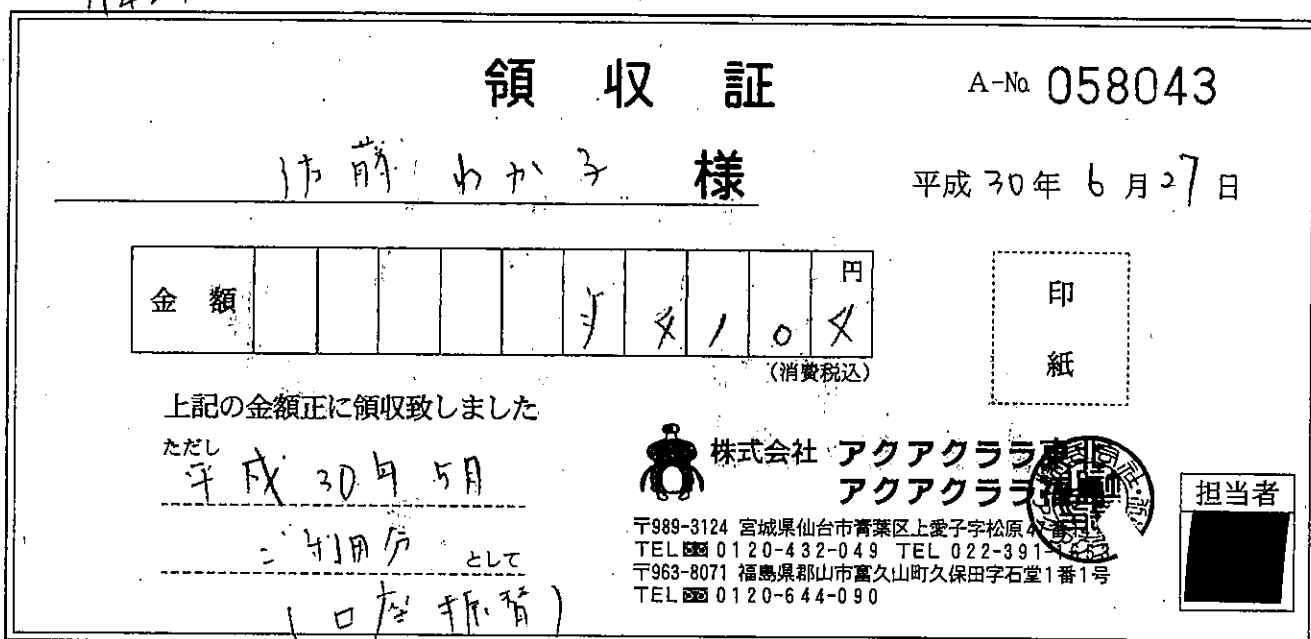 領収証
A-No. 058043
佐藤 わか子 様
平成 30年 6月 27日
金額
円
4104
(消費税込)
上記の金額正に領収致しました
ただし
平成 30年 5月
ご利用分 として
(口座振替)
印
紙
株式会社 アクアクララ東
アクアクララ
〒989-3124 宮城県仙台市青葉区上愛子字松原47番
TEL 0120-432-049 TEL 022-391-
〒963-8071 福島県郡山市富久山町久保田字石堂1番1号
TEL 0120-644-090
担当者